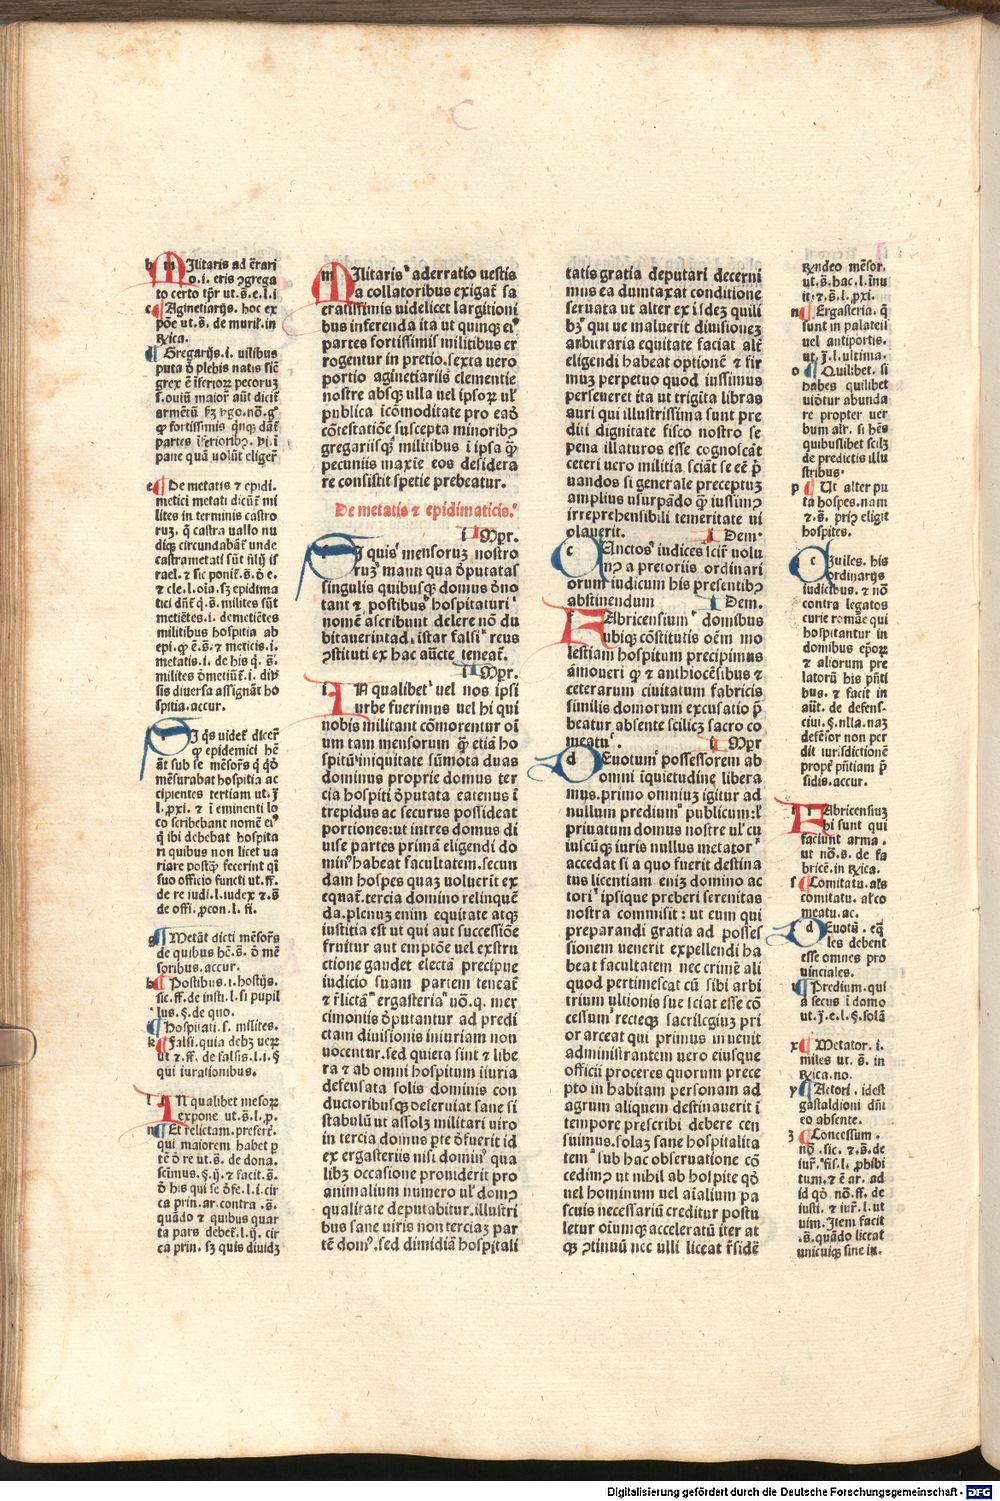 C
b m Ilitaris ad ẽrari
o.i. eris ꝯgrega
to certo tp̃r ut.s̃.e.l.i
c Aginetiarijs. hoc ex
põe ut.s̃. de muril.in
Rxica.
Gregarijs.i. uilibus
puta õ plebis natis siẽ
grex ẽ ĩferioꝝ pecoruꝫ
s.ouiũ maioꝝ aũt dicit̃
partes
pane quã uolũt eliger̃
e De metatis ⁊ epidi.
metici metati dicũt̃ mi
lites in terminis castro
ruꝫ. q̃ castra uallo nu
diqꝫ circundabãt̃ unde
castrametati sũt filij is
rael. ⁊ sic ponit̃.s̃.õ e.
⁊ cle.l.oĩa.sꝫ epidima
tici dñt̃ q̃.s̃. milites sũt
metiẽtes.i. demetiẽtes
militibus hospitia ab
epi.qꝫ ẽ.s̃. ⁊ meticis.i.
metatis.i. de his q̃.s̃.
milites õmetiũt̃.i. diu
sis diuersa assignãt ho
spitia.accur.
I q̃s uidet̃ dicer̃
qꝫ epidemici hẽ
ãt sub se mẽsor̃s q̃ q̃õ
mẽsurabat hospitia ac
cipientes tertiam ut.j̃
l.pxi. ⁊ i eminenti lo
co scribebant nomẽ ei⁹
q̃ ibi debebat hospita
ri quibus non licet ua
riare postqꝫ fecerint qĩ
suo officio functi ut.ff.
de re iudi.l.iudex ⁊.s̃
de offi.ꝓcon.l.fi.
g Metãt dicti mẽsor̃s
de quibus hẽ.s̃. õ mẽ
soribus.accur.
h Postibus.i.hostijs.
sic.ff.de insti.l.si pupil
lus.§.de quo.
i Hospitati.s. milites.
k Falsi.quia debꝫ ueꝝ
ut ⁊.ff. de falsis.l.i.§
qui iurationibus.
l I N qualibet mesoꝝ
expone ut.s̃.l.p.
m Et relictam.prefert̃.
qui maiorem habet p
tẽ õ re ut.s̃. de dona.
scimus.§.ij. ⁊ facit.s̃.
õ his qui se õfe.l.i.cir
ca prin.ar.contra.s̃.
quãdo ⁊ quibus quar
ta pars debet̃.l.ij. cir
ca prin. sꝫ quis diuidꝫ
m Ilitaris⁹ aderratio uestis
a collatoribus exigat̃ sa
cratissimis uidelicet largitioni
bus inferenda ita ut quinqꝫ ei⁹
partes fortissimis militibus er
rogentur in pretio.sexta uero
portio aginetiariis clementie
nostre absqꝫ ulla uel ipsoꝝ ul̃
publica ĩcõmoditate pro eaõ
cõtestatiõe suscepta minoribꝫ
gregariisqꝫ militibus i ipsa qꝫ
pecuniis maxĩe eos desidera
re consistit spetie prebeatur.
De metatis ⁊ epidimaticis.
i Mpr.
s I quis mensoruꝫ nostro
ruꝫ manu qua õputatas
singulis quibusqꝫ domus õno
tant ⁊ postibus hospitaturi
nomẽ ascribunt delere nõ du
bitauerintad.istar falsi reus
ꝯstituti ex hac aũcte teneat̃.
ii Mpr.
i N qualibet uel nos ipsi
urbe fuerimus uel hi qui
nobis militant cõmorentur oĩ
um tam mensorum qꝫ etiã ho
spitũ iniquitate sũmota duas
dominus proprie domus ter
cia hospiti õputata eatenus i
trepidus ac securus possideat
portiones:ut intres domus di
uise partes primã eligendi do
min⁹ habeat facultatem.secun
dam hospes quaꝫ uoluerit ex
eqnat̃.tercia domino relinquẽ
da.plenuꝫ enim equitate atqꝫ
iustitia est ut qui aut successiõe
fruitur aut emptõe uel exstru
ctione gaudet electã precipue
iudicio suam partem teneat̃
⁊ r̃lictã ergasteria uõ.q. mer
cimoniis õputantur ad predi
ctam diuisionis iniuriam non
uocentur.sed quieta sint ⁊ libe
ra ⁊ ab omni hospitum iiuria
defensata solis dominis con
ductoribusqꝫ deseruiat sane si
stabulũ ut assolꝫ militari uiro
in tercia domus pte õfuerit id
ex ergasteriis nisi domin⁹ qua
libꝫ occasione prouiderit pro
animalium numero ul̃ domꝰ
qualitate deputabitur.illustri
bus sane uiris non terciaꝫ par
tẽ domꝰ.sed dimidiã hospitali
tatis gratia deputari decerni
mus ea duntaxat conditione
seruata ut alter ex isdeꝫ quili
bꝫ qui ue maluerit diuisioneꝫ
arbitraria equitate faciat alt̃
eligendi habeat optionẽ ⁊ fir
muꝫ perpetuo quod iussimus
perseueret ita ut trigĩta libras
auri qui illustrissima sunt pre
diti dignitate fisco nostro se
pena illaturos esse cognoscãt
ceteri uero militia sciãt se eẽ p̃
uandos si generale preceptuꝫ
amplius usurpãdo qꝫ iussimꝰ
irreprehensibili temeritate ui
olauerit. i Dem.
c Vnctos iudices scir̃ uolu
mꝰ a pretoriis ordinari
orum iudicum his presentibꝫ
abstinendum i Dem.
f Abricensium domibus
ubiqꝫ cõstitutis oẽm mo
lestiam hospitum precipimus
ãmoueri qꝫ ⁊ anthiocẽsibus ⁊
ceterarum ciuitatum fabricis
similis domorum excusatio p̃
beatur absente scilicꝫ sacro co
meatu. ii Mpr
d Euotum possessorem ab
omni iquietudine libera
mus.primo omniuꝫ igitur ad
nullum predium publicum:l̃
priuatum domus nostre ul̃ cu
iuscũqꝫ iuris nullus metator
accedat si a quo fuerit destina
tus licentiam eniꝫ domino ac
tori ipsique preberi serenitas
nostra commisit : ut eum qui
preparandi gratia ad posses
sionem uenerit expellendi ha
beat facultatem nec crimẽ ali
quod pertimescat cũ sibi arbi
trium ultionis sue sciat esse cõ
cessum recteqꝫ sacrilegiuꝫ pri
or arceat qui primus inuenit
administrantem uero eiusque
officii proceres quorum prece
pto in habitam personam ad
agrum aliquem destinauerit i
tempore prescribi debere cen
suimus.solaꝫ sane hospitalita
tem sub hac obseruatione cõ
cedimꝰ ut nihil ab hospite qõ
uel hominum uel aĩalium pa
scuis necessariũ creditur postu
letur oĩumqꝫ acceleratũ iter at
qꝫ ꝯtinuũ nec ulli liceat r̃sidẽ
Rxndeo mẽsor.
ut.s̃.hac.l.ĩnu
it.⁊.s̃.l.pxi.
n Ergasteria. q̃
sunt in palateil
uel antiportis.
ut.j̃.l.ultima.
o Quilibet. si
habes quilibet
uiõtur abunda
re propter uer
bum alr̃. si hẽs
quibuslibet scilꝫ
de predictis illu
stribus.
p Ut alter pu
ta hospes.nam
⁊.s̃. priꝰ eligit
hospites.
c Iuiles. his
ordinarijs
iudicibus. ⁊ nõ
contra legatos
curie romãe qui
hospitantur in
domibus ep̃oꝝ
⁊ aliorum pre
latorũ his pñti
bus. ⁊ facit in
aũt. de defens̃.
ciui.§.nlla.naꝫ
defẽsor non per
dit iurisdictionẽ
propt̃ pñtiam p̃
sidis.accur.
r f Abricensiuꝫ
hi sunt qui
faciunt arma.
ut nõ.s̃. de fa
bricẽ.in Rxica.
s Comitatu. al̃s
comitatu. al̃.co
meatu.ac.
t d Euotũ. eqꝫ
les debent
esse omnes pro
uinciales.
u Predium.qui
a secus ĩ domo
ut.j̃.e.l.§.solã
x Metator.i.
miles ut.s̃. in
Rxica.no.
y Actori.idest
gastaldioni dñi
eo absente.
z Concessum.
nõ.sic.⁊.s̃.de
iur̃. fis.l. ꝓhibi
tum.⁊ ẽ ar. ad
id qõ nõ.ff. de
iusti. ⁊ iur̃.l.ut
uim. Item facit
.s̃.quãdo liceat
unicuiqꝫ sine iu.
Digitalisierung gefördert durch die Deutsche Forschungsgemeinschaft - DFG